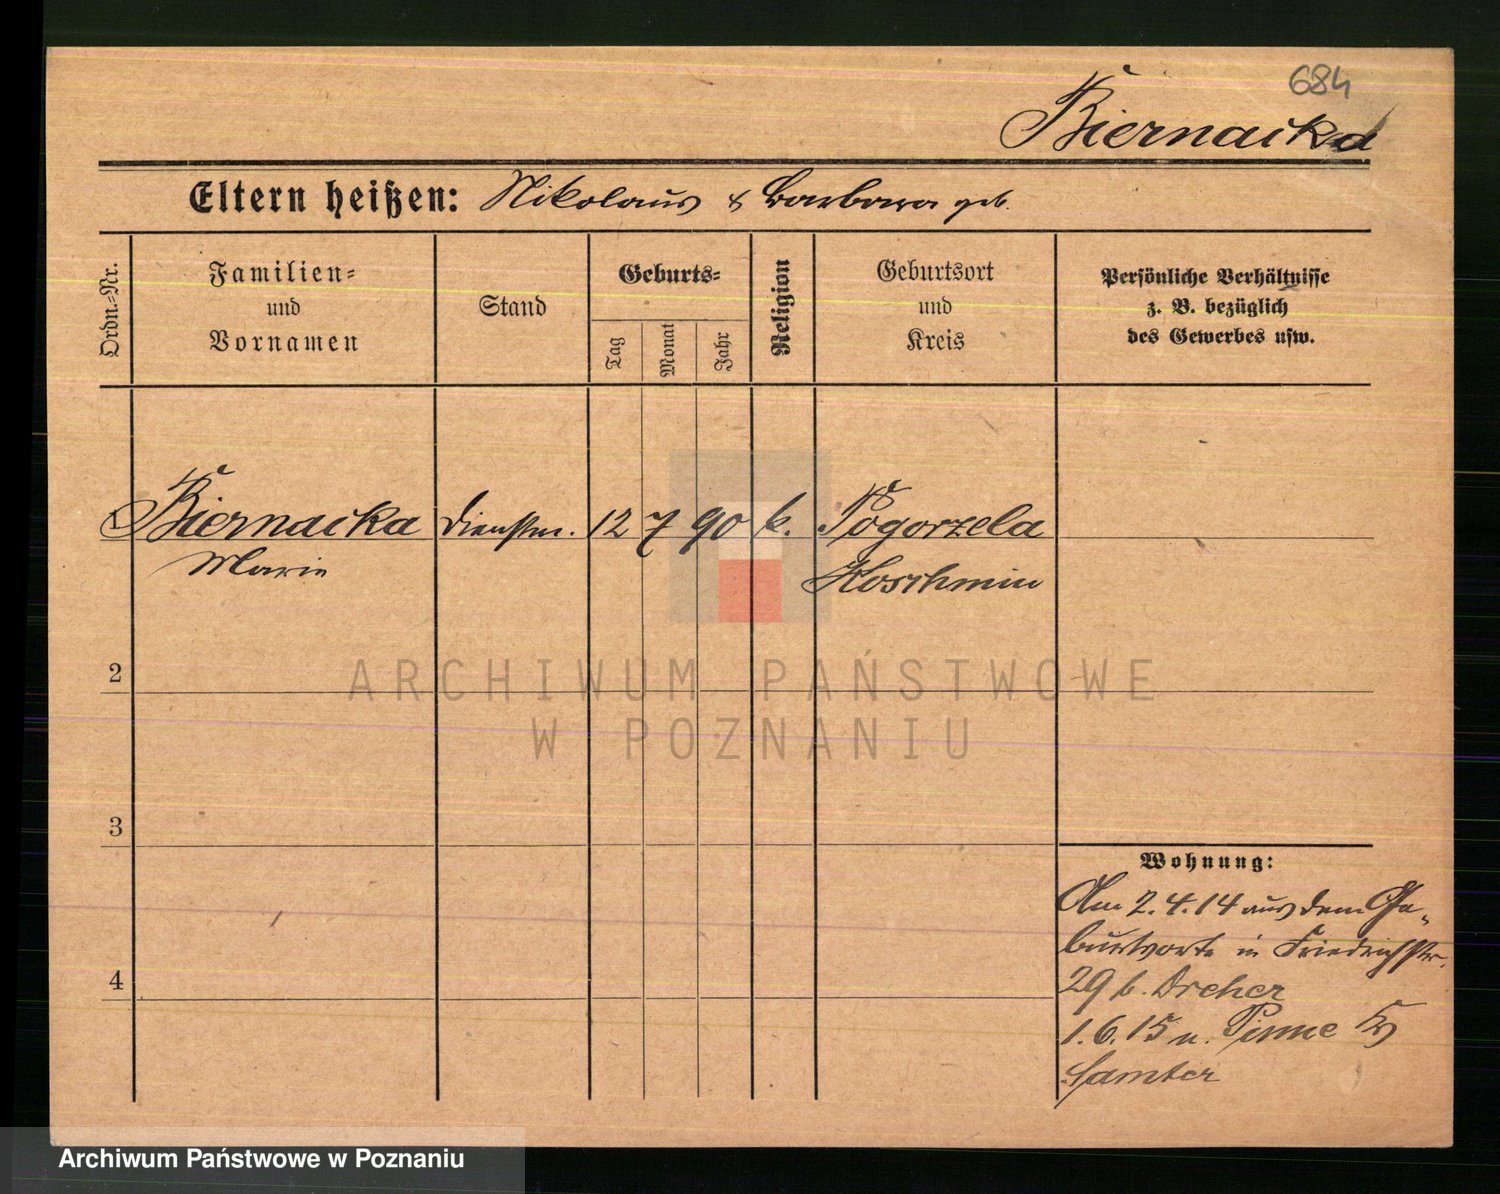 684
Biernacka
Eltern heißen: Nikolaus & Barbara geb.
Ordn.-Nr.
Familien-
und
Vornamen
Stand
Geburts-
Tag
Monat
Jahr
Religion
Geburtsort
und
Kreis
Persönliche Verhältnisse
z. B. bezüglich
des Gewerbes usw.
Biernacka Dienstm. 12 7 90 k. Pogorzela
Marie Koschmin
2
3
4
Wohnung:
Am 2.4.14 aus dem Ge-
burtsorte in Friedrichstr.
29 b. Dreher
1.6.15 n. Pinne Kr
Samter
ARCHIWUM PAŃSTWOWE
W POZNANIU
Archiwum Państwowe w Poznaniu